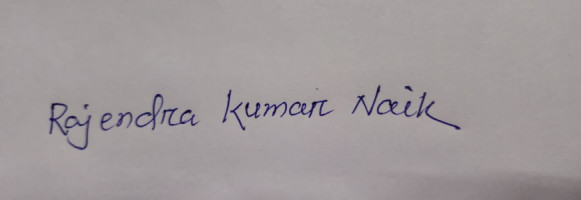 Rajendra Kumar Naik